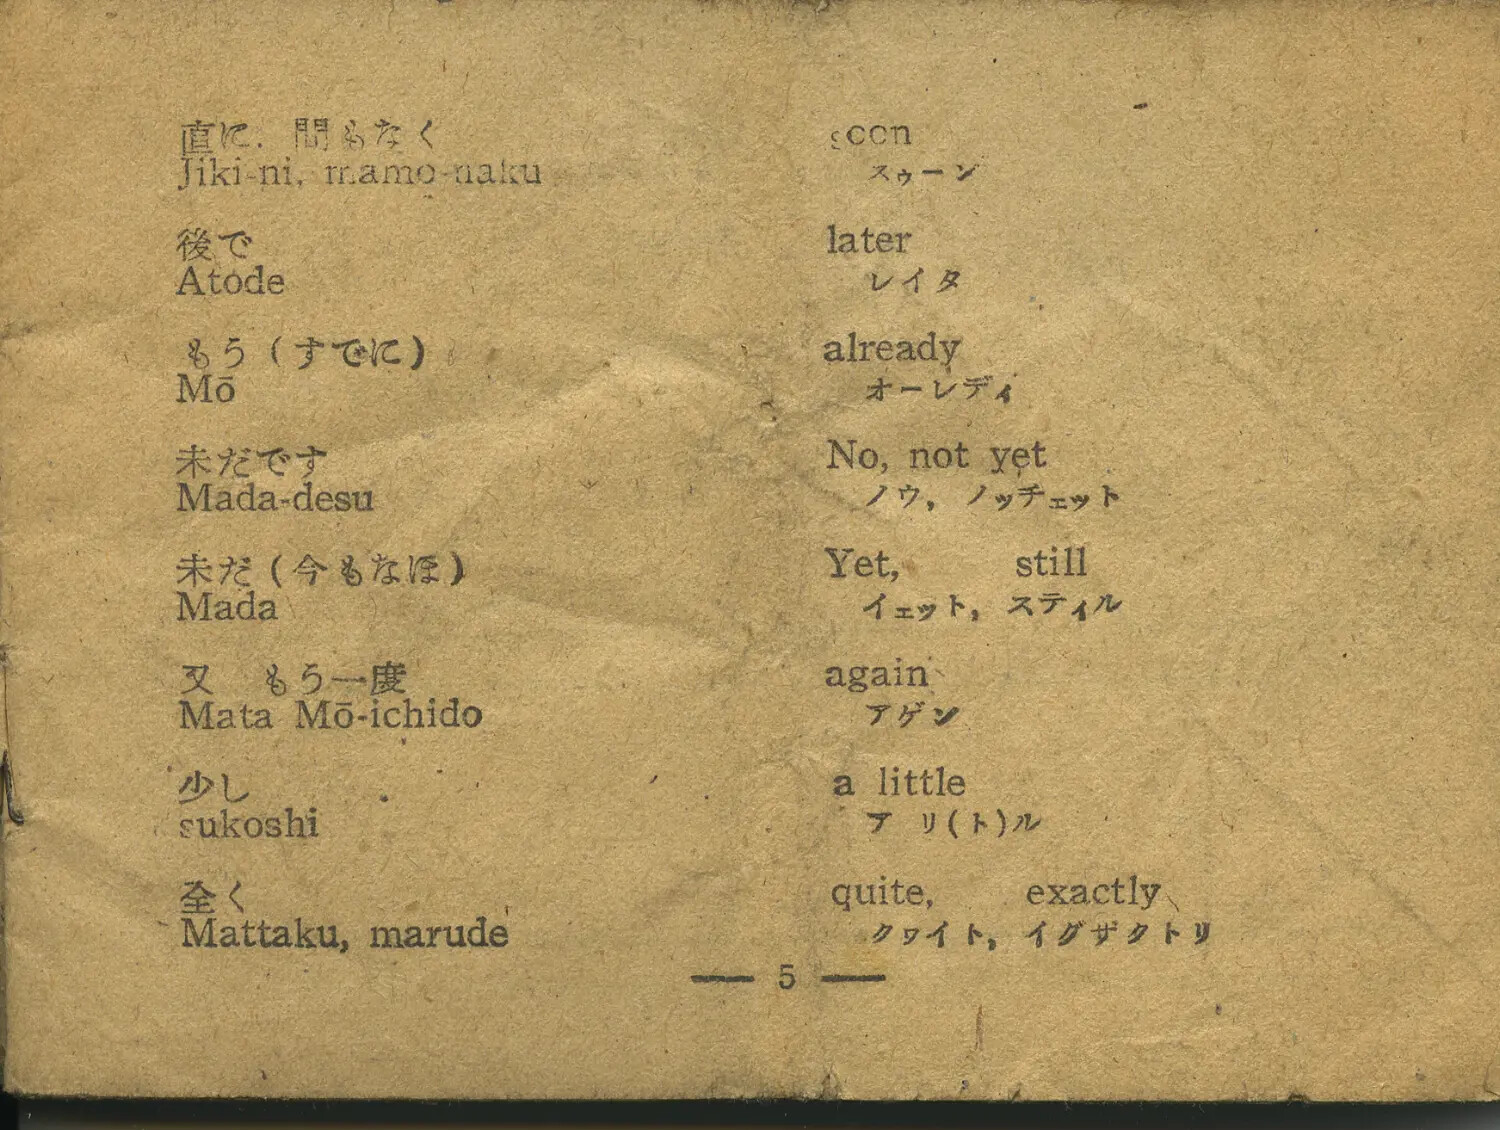 直に. 間もなく soon
Jiki-ni, mamo-naku スゥーン
後で later
Atode レイタ
もう (すでに) already
Mō オーレディ
未だです No, not yet
Mada-desu ノウ, ノッチェット
未だ (今もなほ) Yet, still
Mada イェット, スティル
又 もう一度 again
Mata Mō-ichido アゲン
少し a little
sukoshi ア リ(ト)ル
全く quite, exactly
Mattaku, marude クワイト, イグザクトリ
— 5 —